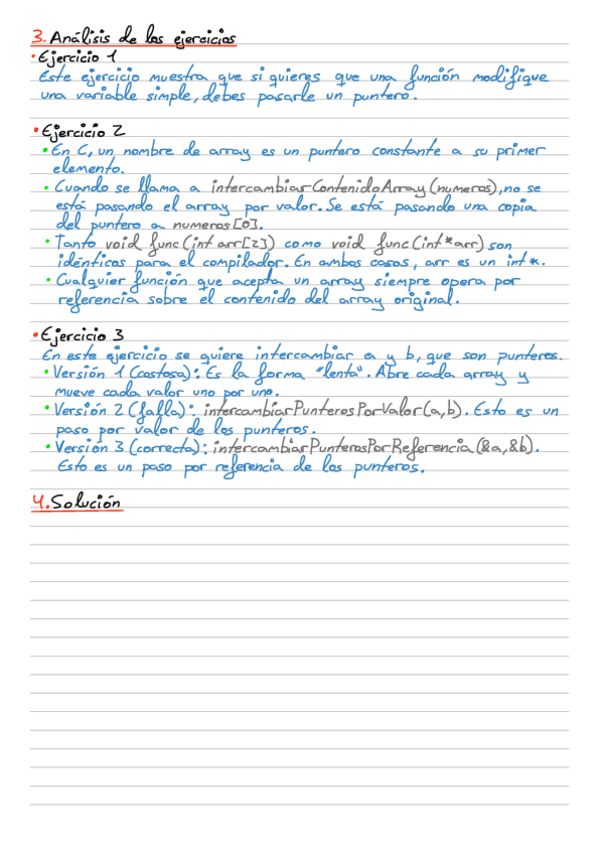 3. Análisis de los ejercicios
• Ejercicio 1
Este ejercicio muestra que si quieres que una función modifique
una variable simple, debes pasarle un puntero.
• Ejercicio 2
• En C, un nombre de array es un puntero constante a su primer
elemento.
• Cuando se llama a intercambiarContenidoArray(numeros), no se
está pasando el array por valor. Se está pasando una copia
del puntero a numeros[0].
• Tanto void func(int arr[2]) como void func(int *arr) son
idénticos para el compilador. En ambos casos, arr es un int*.
• Cualquier función que acepta un array siempre opera por
referencia sobre el contenido del array original.
• Ejercicio 3
En este ejercicio se quiere intercambiar a y b, que son punteros.
• Versión 1 (costosa): Es la forma "lenta". Abre cada array y
mueve cada valor uno por uno.
• Versión 2 (falla): intercambiarPunterosPorValor(a,b). Esto es un
paso por valor de los punteros.
• Versión 3 (correcta): intercambiarPunterosPorReferencia(&a,&b).
Esto es un paso por referencia de los punteros.
4. Solución